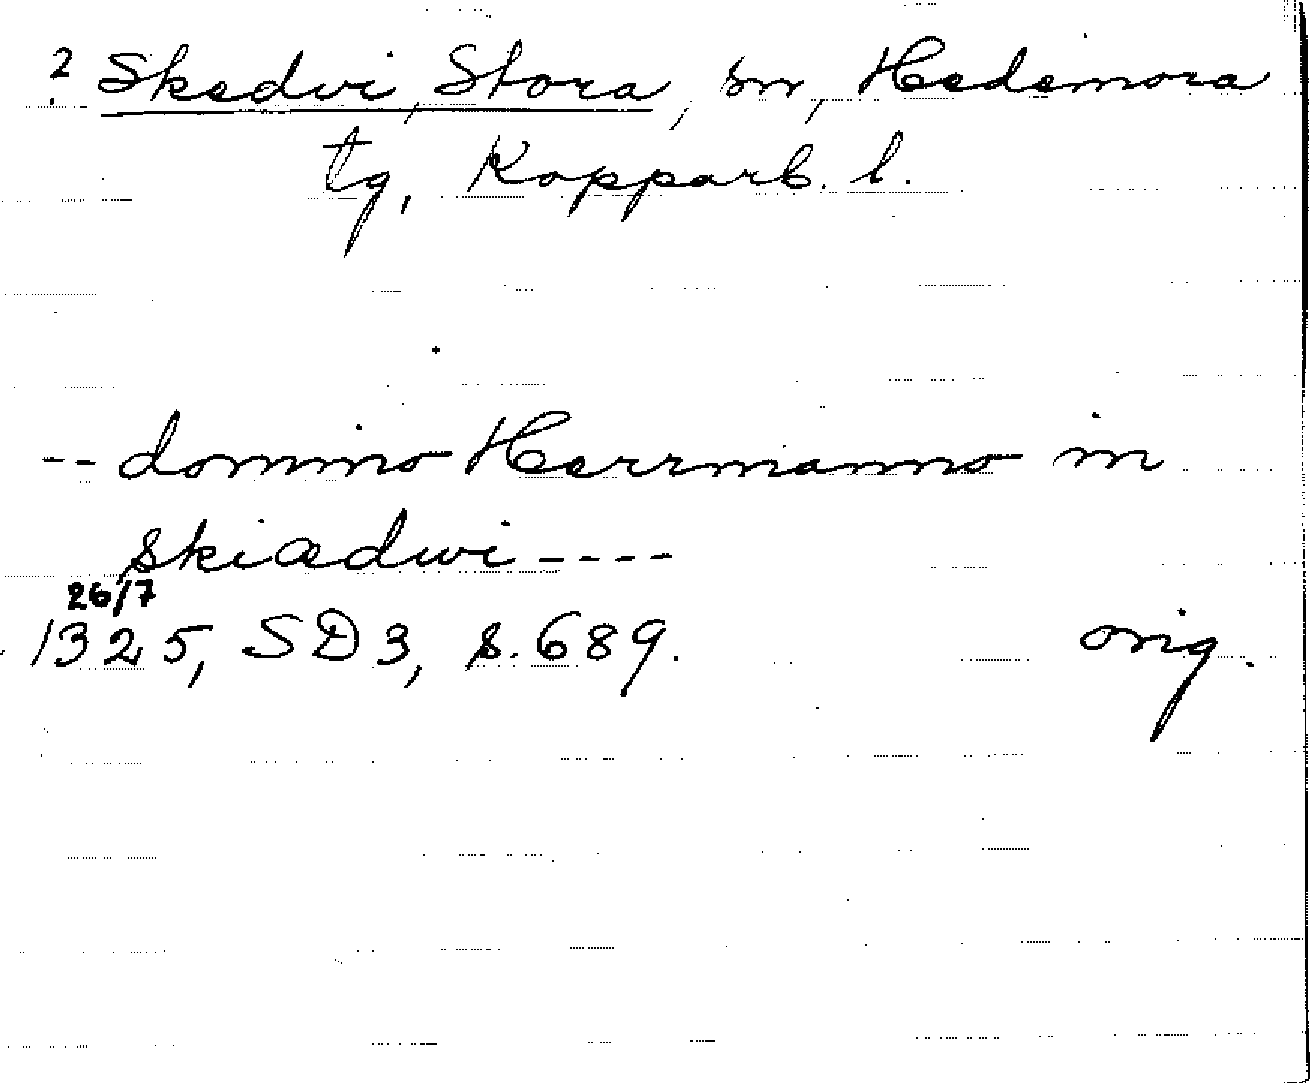 ? Skedvi, Stora, sn, Hedemora
tg, Kopparb. l.
-- domino Herrmanno in
skiædwi ----
26/7
1325, SD 3, s. 689. orig.